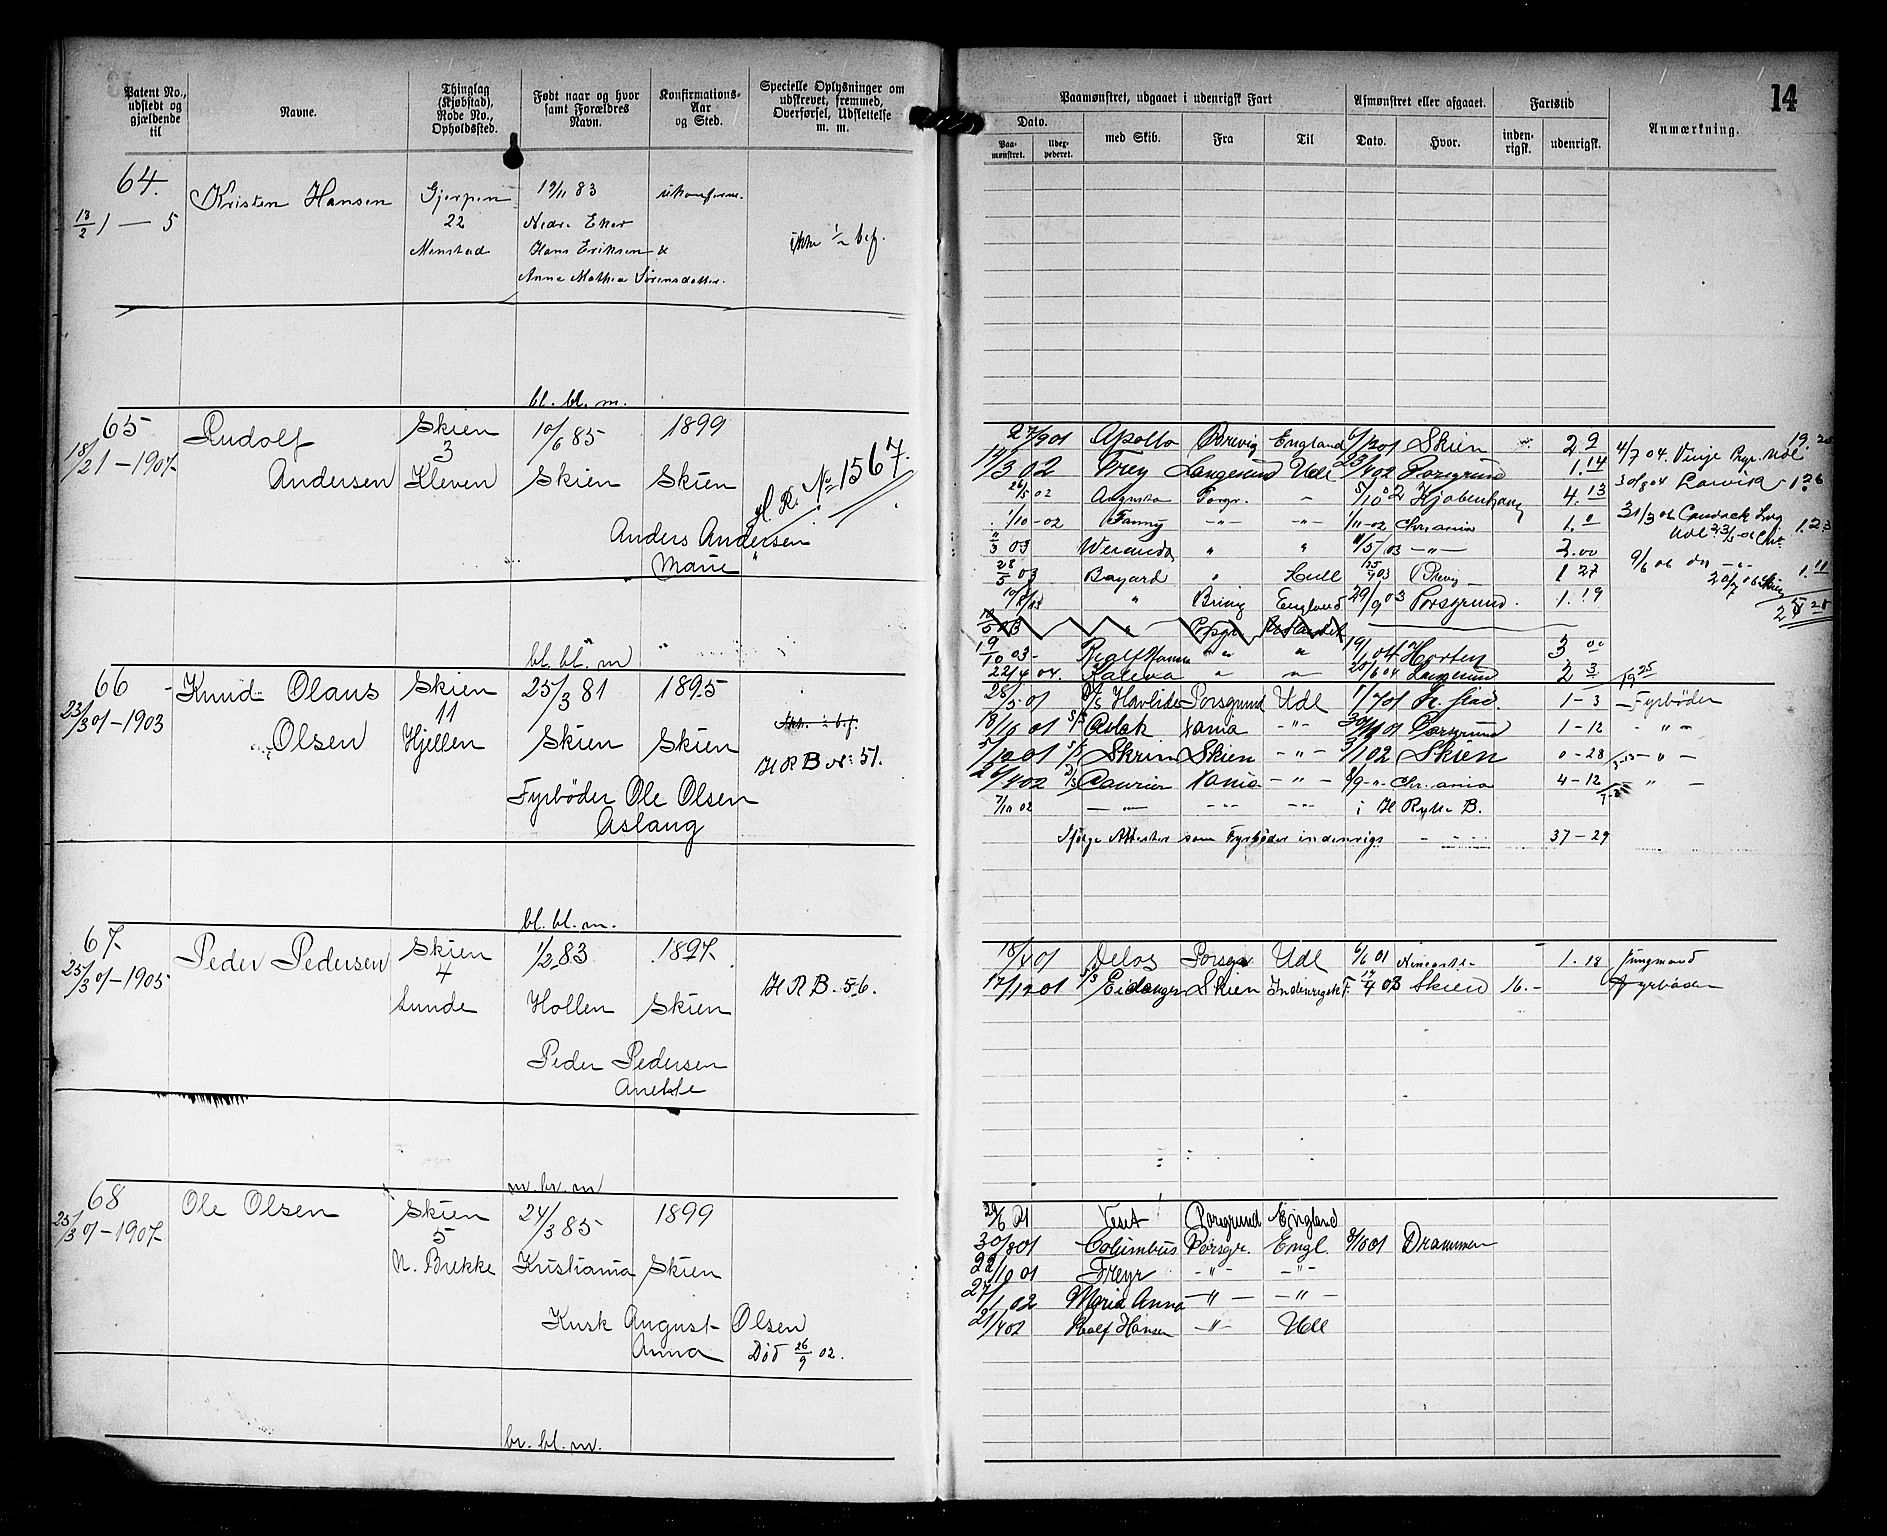 14
Patent No., udstedt og gjældende til
Navne.
Thinglag (Kjøbstad), Rode No., Opholdssted.
Født naar og hvor samt Forældres Navn.
Konfirmations- Aar og Sted.
Specielle Oplysninger om udskrevet, fremmed, Overførsel, Udslettelse m. m.
Paamønstret, udgaaet i udenrigsk Fart
Afmønstret eller afgaaet.
Fartstid
Anmærkning.
Dato.
Paa- mønstret.
Udex- pederet.
med Skib.
Fra
Til
Dato.
Hvor.
inden- rigsk.
udenrigsk.
64. Kristen Hansen Gjerpen 19/11 83 ukonfirm.
13/2 1 — 5 22 Nedre Eker
Menstad Hans Eriksen &
ikke 1/2 bef.
Anne Mathea Sørensdatter.
bl. bl. m.
65 Rudolf Skien 10/6 85 1899
18/2 1 - 1907 3
Andersen Kleven Skien Skien
H. R. No 1567.
Anders Andersen
Marie
27/9 01 Apollo Brevig England 6/12 01 Skien 2 9
14/3 02 Frey Langesund Udl 23/4 02 Porsgrund 1. 14
26/5 02 Augusta Porsgr. - 5/10 02 Kjøbenhavn 4. 13
1/10 - 02 Fanny -"- -"- 1/11 - 02 Chr.ania 1. 0
11/3 03 Weranda " " 11/5 03 -"- 2.00
28/5 03 Bayard " Hull 25/7 03 Brevig 1 27
" Brevig England 29/9 03 Porsgrund. 1. 19
19/10 03 - Rolf Hansen " " " 19/1 04 Horten 3 00
22/4 04. " " 25/6 04 Langesund 2 3
4/7 04. Vinje Udl.
30/8 04 Larvik - 1 26
31/3 06
1. 23
9/6 06 do -"-
20/7 06 Skien 1. 11
bl. bl. m
66 Knud Olaus Skien 25/3 81 1895
23/3 01 - 1903 11
Olsen Hjellen Skien Skien
H R B No 51.
Fyrbøder Ole Olsen
Aslaug
28/5 01 Porsgrund Udl 1/7 01 1 - 3 - Fyrbøder
18/10 01 Aslak -"- Porsgrund 1 - 12 - " -
5/12 01 Skrim Skien - " - 3/1 02 Skien 0 - 28 - " -
26/4 02 Courier - " - 8/9 -"- Chr.ania 4 - 12 - " -
7/10 02 - " - - " - - " - i H Rulle B.
Ifølge Attester som Fyrbøder indenrigs - - - - 37 - 29
bl. bl. m.
67 Peder Pedersen Skien 1/2 83 1897.
25/3 01 - 1905 4
Lunde Hollen Skien
H R B. 56.
Peder Pedersen
Anette
18/4 01 Delos Porsgr Udl 6/6 01 1. 18 Jungmand
17/12 01 5/3 Eidanger Skien Indenrigsk F. 17/4 03 Skien 16. - Fyrbøder
m. br. m
68 Ole Olsen Skien 24/3 85 1899
25/3 01 - 1907 5
N. Brekke Kristiania Skien
Kusk August Olsen
Anna Død 26/9 02.
29/6 01 Vesit Porsgrund England
30/8 01 Columbus Porsgr. Engl. 8/10 01 Drammen
22/10 01 Freyr -"- -"-
27/1 02 Maria Anna -"- -"-
21/4 02 Rolf Hansen -"- Udl
br. bl. m.